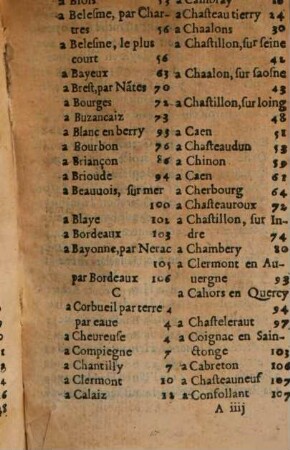 a Blois 53
a Belesme, par Char-
tres 56
a Belesme, le plus
court 56
a Bayeux 63
a Brest, par Nãtes 70
a Bourges 72
a Buzancaiz 73
a Blanc en berry 93
a Bourbon 76
a Briançon 86
a Brioude 94
a Beauuois, sur mer
100
a Blaye 101
a Bordeaux 103
a Bayonne, par Nerac
105
par Bordeaux 106
C
a Corbueil par terre 4
par eaue 4
a Cheureuse 4
a Compiegne 7
a Chantilly 7
a Clermont 10
a Calaiz 12
a Cambray
a Chasteau tierry 24
a Chaalons 30
a Chastillon, sur seine
42
a Chaalon, sur saosne
43
a Chastillon, sur loing
48
a Caen 51
a Chasteaudun 53
a Chinon 59
a Caen 61
a Cherbourg 64
a Chasteauroux 72
a Chastillon, sur In-
dre 74
a Chambery 80
a Clermont en Au-
uergne 93
a Cahors en Quercy
94
a Chasteleraut 97
a Coignac en Sain-
ctonge 103
a Cabreton 106
a Chasteauneuf 107
a Consollant 107
A iiij